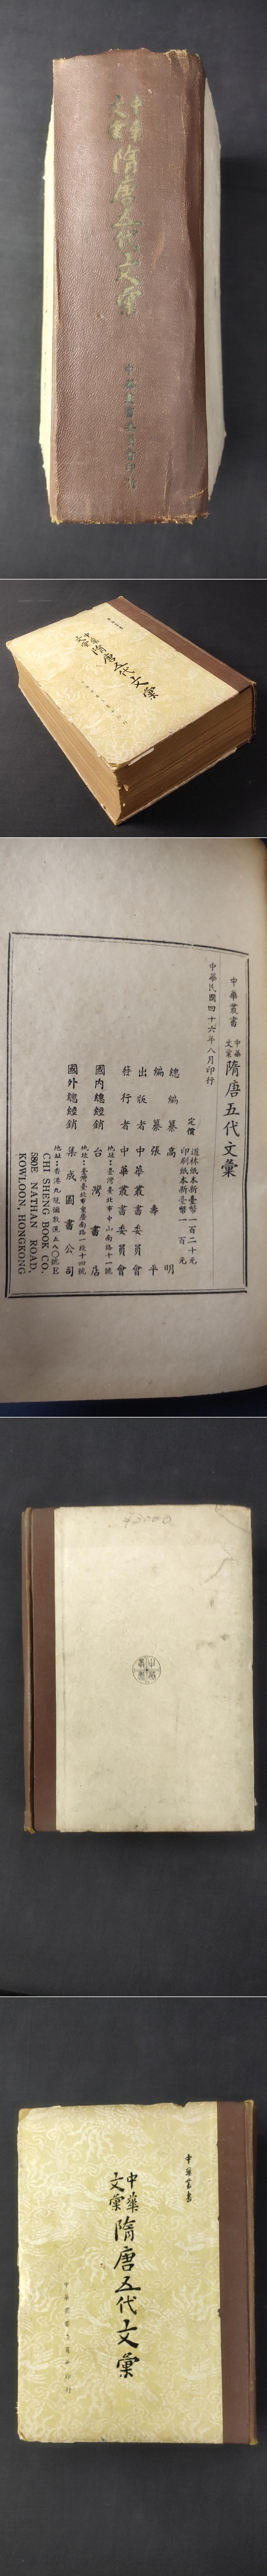 中華
文彙
隋唐五代文彙
中華叢書委員會印行
中華叢書
中華
文彙
隋唐五代文彙
中華叢書
中華
文彙
隋唐五代文彙
中華民國四十六年八月印行
定價
道林紙本新臺幣一百二十元
印刷紙本新臺幣一百元
總編纂 高明
編纂 張壽平
出版者 中華叢書委員會
發行者 中華叢書委員會
地址：臺灣臺北市中山南路十一號
國內總經銷 台灣書店
地址：臺灣臺北市重慶南路一段十四號
國外總經銷 集成圖書公司
地址：香港九龍彌敦道五八〇號E
CHI SHENG BOOK CO.
580E NATHAN ROAD,
KOWLOON, HONGKONG
中華叢書
中華
文彙
隋唐五代文彙
中華叢書委員會印行